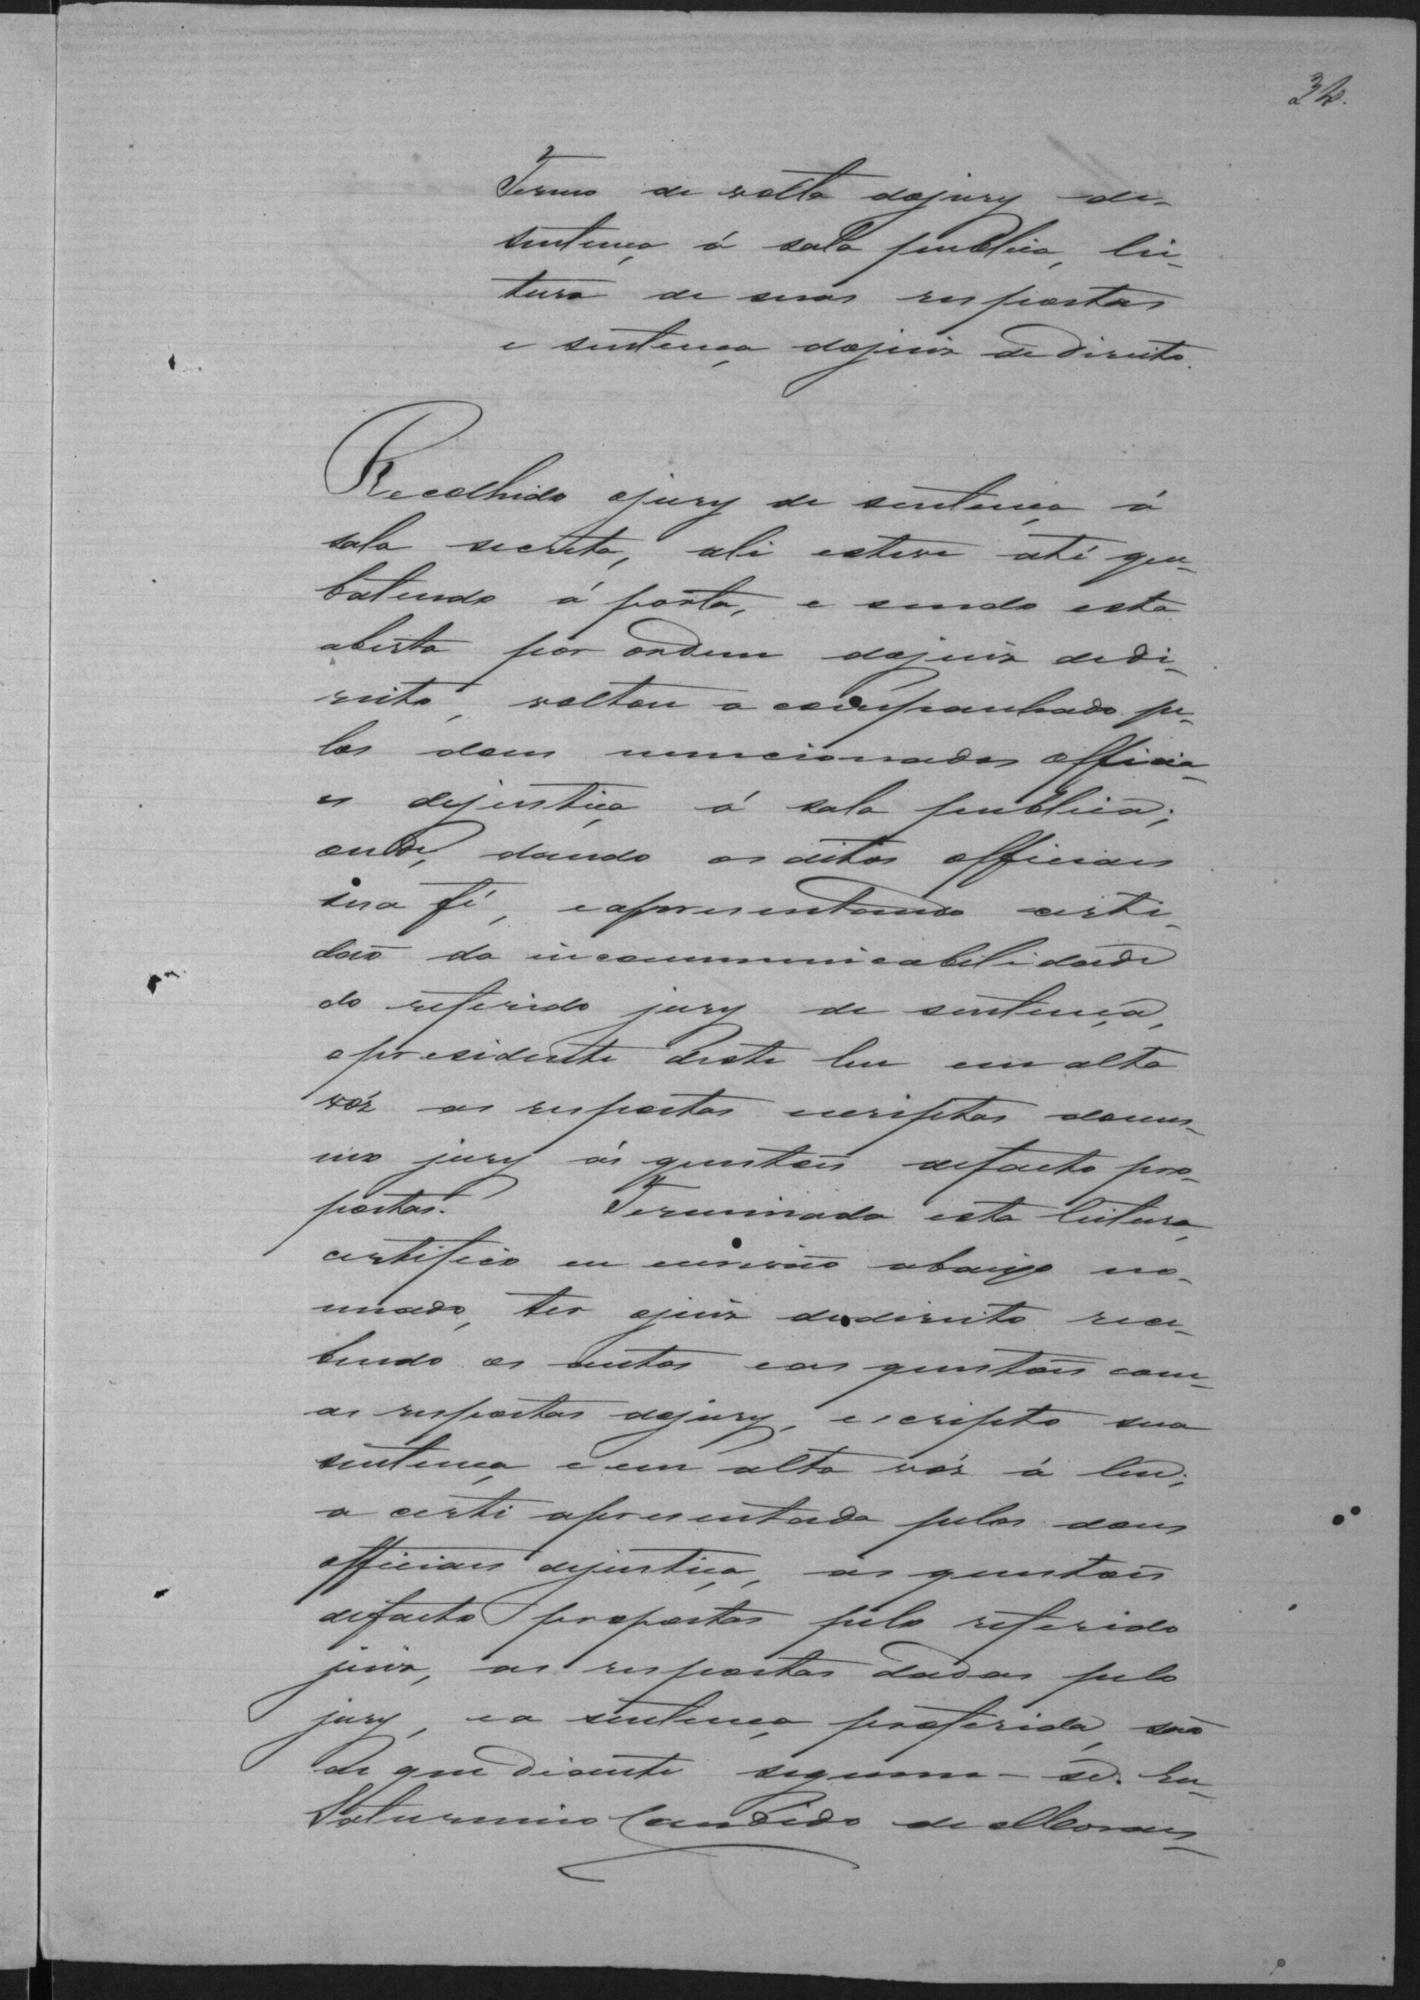 34.
Termo de volta dojury de-
sentença á sala publica, lei-
tura de suas respostas
e sentença dojuiz de direito.
Recolhido ojury de sentença á
sala secreta, ali esteve até que
batendo á porta, e sendo esta
aberta por ordem dojuiz dedi-
reito, voltou acompanhado pe-
los dous mencionados officia-
es dejustiça á sala publica;
onde, dando os ditos officiaes
sua fé, eapresentando certi-
dão da incommunicabilidade
do referido jury de sentença,
opresidente deste leu em alta
vóz as respostas escriptas domes-
mo jury ás questões defacto pro-
postas. Terminada esta leitura,
certifico eu escrivão abaixo no-
meado, ter ojuiz dedireito rece-
bendo os autos eas questões com
as respostas dojury, escripto sua
sentença e em alta vóz á leu;
a certi apresentada pelos dous
officiaes dejustiça, as questões
defacto propostas pelo referido
juiz, as respostas dadas pelo
jury, ea sentença proferida, são
as que diante seguem-se. Eu
Saturnino Candido de Moraes